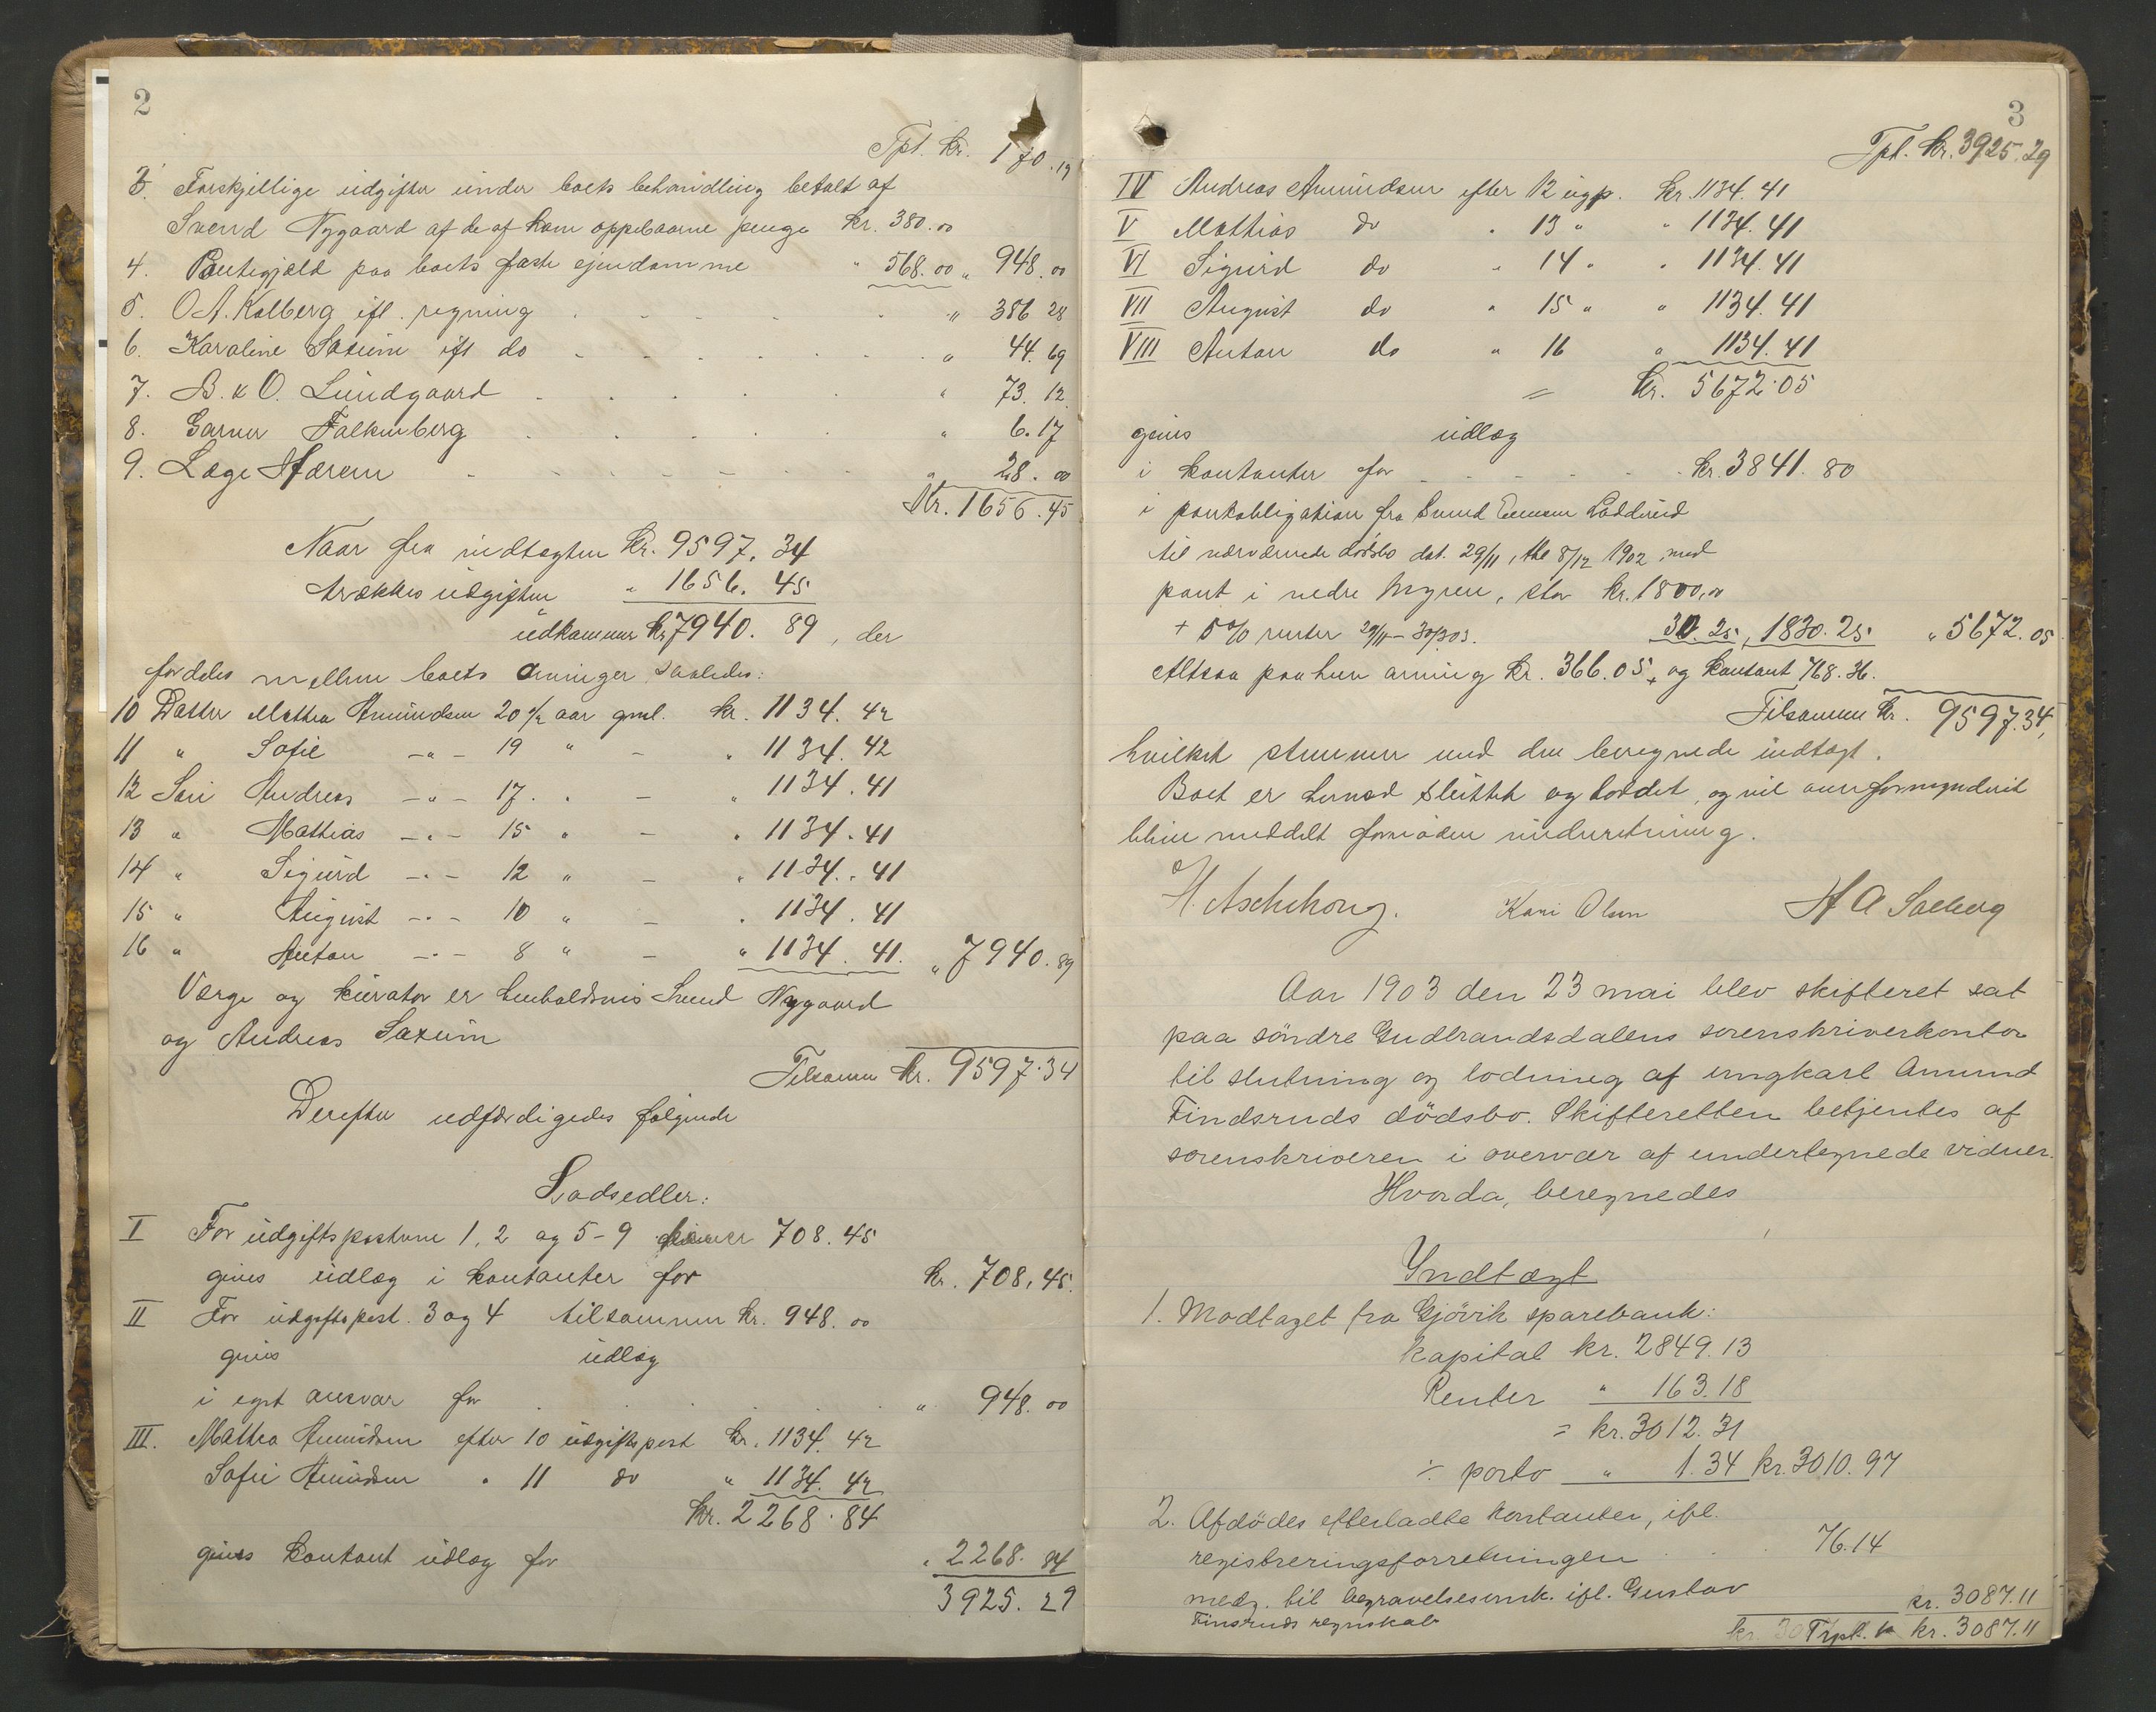 2
Tpt. kr. 170.19
3. Forskjellige udgifter under boets behandling betalt af
Svend Nygaard af de af ham oppebaarne penge kr. 380.00
4. Pantegjæld paa boets faste ejendomme " 568.00 " 948.00
5. O A. Kolberg ifl. regning " 386 28
6. Karoline Saxum ifl do " 44.69
7. B. & O. Lundgaard " 73.12
8. Garver Falkenberg " 6.17
9. Læge Hærem " 28.00
Kr. 1656.45
Naar fra indtægten Kr. 9597.34
trækkes udgiften " 1656.45
udkommer kr 7940.89, der
fordeles mellem boets arvinger saaledes:
10 Datter Mathea Amundsen 20 1/2 aar gml. kr. 1134.42
11 " Sofie -"- 19 " - " 1134.42
12 Søn Andreas -"- 17 " - " 1134.41
13 " Mathias -"- 15 " - " 1134.41
14 " Sigurd -"- 12 " - " 1134.41
15 " August -"- 10 " - " 1134.41
16 " Anton -"- 8 " - " 1134.41. " 7940.89
Værge og kurator er henholdsvis Svend Nygaard
og Andreas Saxum
Tilsammen kr. 9597.34
Derefter udfærdigedes følgende
Lodsedler:
I For udgiftsposterne 1, 2 og 5-9 708.45
gives udlæg i kontanter for kr. 708.45.
II For udgiftspost. 3 og 4 tilsammen kr. 948.00
gives udlæg
i eget ansvar for " 948.00
III. Mathea Amundsen efter 10 udgiftspost kr. 1134.42
Sofie Amundsen " 11 do " 1134.42
kr. 2268.84
gives kontant udlæg for " 2268.84
3925.29
3
Tpt. kr. 3925.29
IV Andreas Amundsen efter 12 ugp. kr. 1134.41
V Mathias do " 13 " " 1134.41
VI Sigurd do " 14 " " 1134.41
VII August do " 15 " " 1134.41
VIII Anton do " 16 " 1134.41
= kr. 5672.05
gives udlæg
i kontanter for kr. 3841.80
i pantobligation fra Svend Loddrud
til nærværende dødsbo dat. 29/11, thl 8/12 1902 med
pant i nedre Myren, stor kr. 1800,00
+ 5% renter 29/11 - 30/3 03. 30.25, 1830.25 " 5672.05
Altsaa paa hver arving kr. 366.05, og kontant 768.36.
Tilsammen kr. 9597.34,
hvilket stemmer med den beregnede indtægt.
Boet er hermed sluttet og loddet, og vil overformynderiet
blive meddelt fornøden underretning.
H. Aschehoug. Kari Olsen H A Solberg
Aar 1903 den 23 mai blev skifteret sat
paa söndre Gudbrandsdalens sorenskriverkontor
til slutning og lodning af ungkarl Amund
Findsruds dödsbo. Skifteretten betjentes af
sorenskriveren i overvær af undertegnede vidner.
Hvorda, beregnedes
Indtægt
1. Modtaget fra Gjövik sparebank:
kapital kr. 2849.13
Renter " 163.18
= kr. 3012.31
÷ porto " 1.34 kr. 3010.97
2. Afdödes efterladte kontanter, ifl.
registreringsforretningen 76.14
medg. til begravelsesomk. ifl. Gustav
Finsruds regnskab kr. 3087.11
Trpt. kr. 3087.11